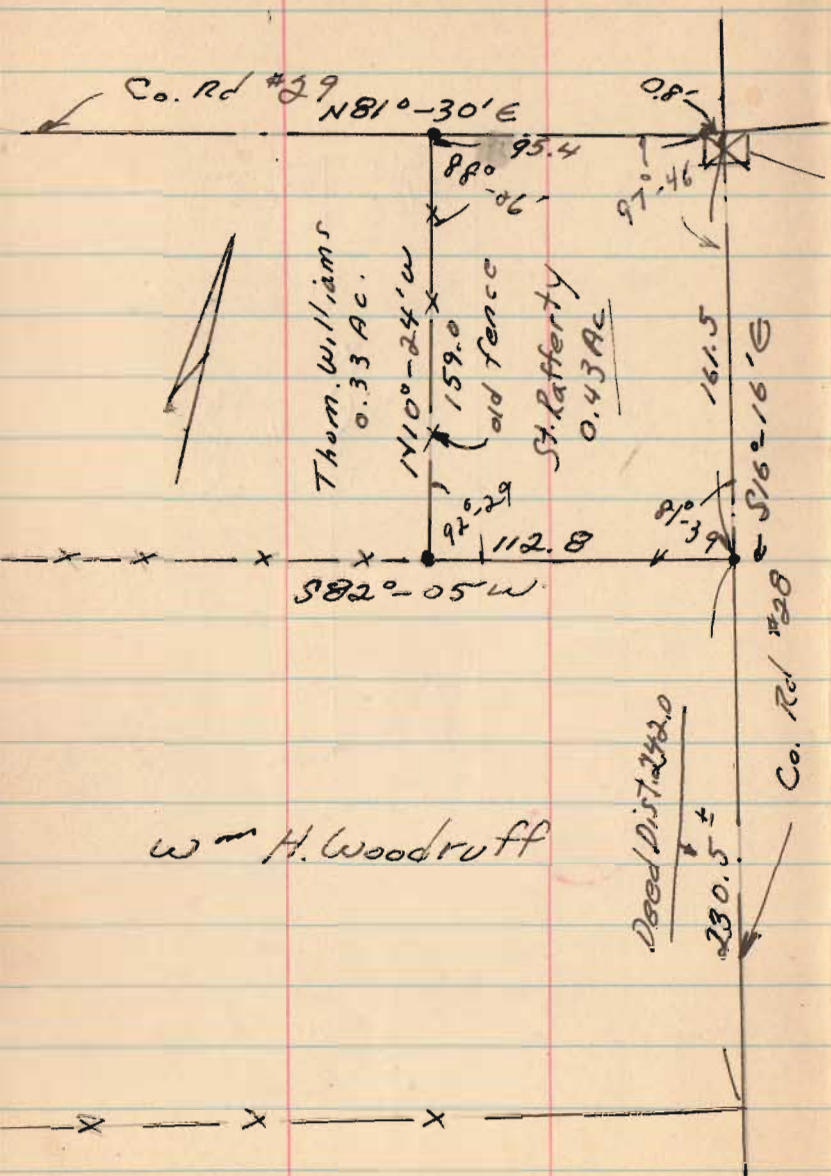 Co. Rd #29
N81°-30'E
0.8'
95.4
88°-06'
97°-46
Thom. Williams
0.33 Ac.
N10°-24'W
159.0
old fence
St. Rafferty
0.43 Ac
161.5
S16°-16'E
92°-29
112.8
81°-39
S82°-05 W
Co. Rd #28
Deed Dist. 242.0
230.5 ±
Wm H. Woodruff